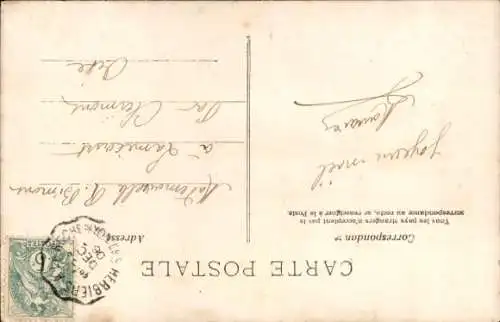 CARTE POSTALE
Correspondance
Tous les pays étrangers n'acceptent pas la
correspondance au recto, se renseigner à la Poste
Joyeux noël
Adresse
Mademoiselle R. Bimont
à Lamécourt
Par Clermont
Oise
HERBIERS
DEC
06